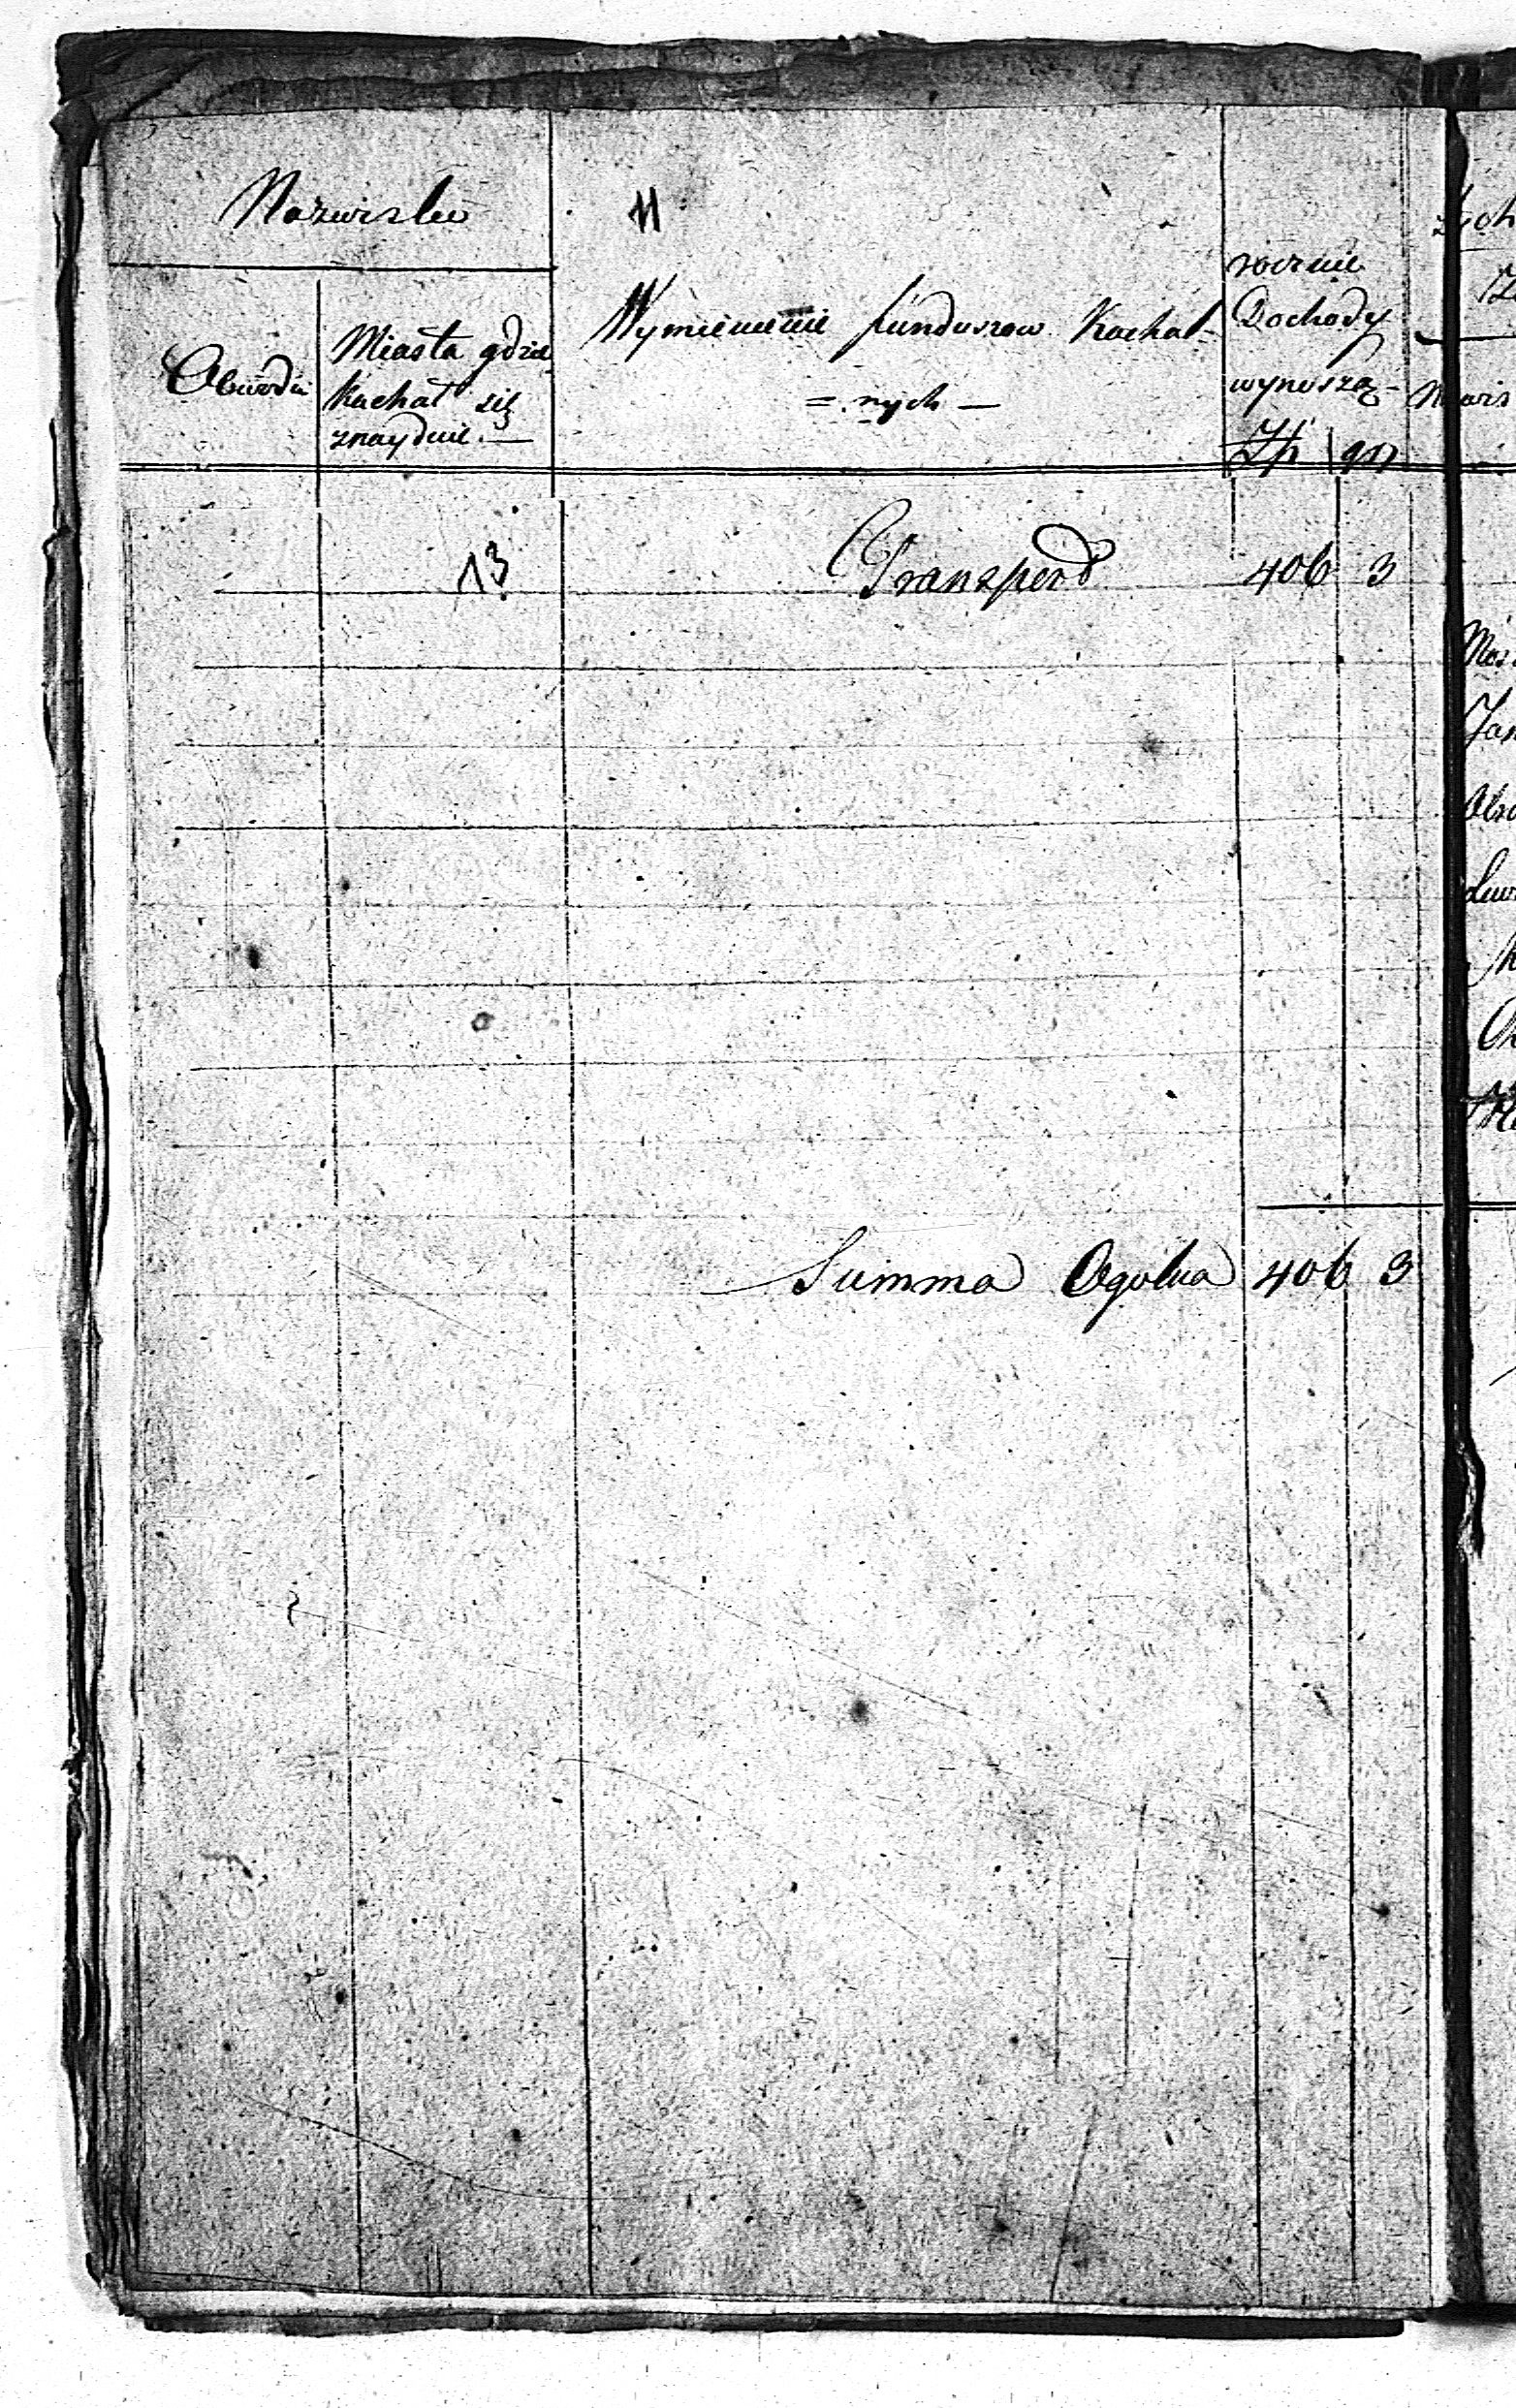 Nazwisko
11
Obwodu
Miasta gdzie
Kachał się
znayduie.—
Wymienienie funduszow Kachal-
=nych—
rocznie
Dochody
wynoszą-
Zł | gr
13 Transport 406 3
Summa Ogolna 406 3